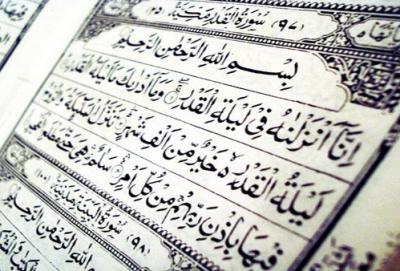 (٩٧) سُوْرَةُ الْقَدْرِ مَكِّيَّةٌ (٢٥)
بِسْمِ اللّٰهِ الرَّحْمٰنِ الرَّحِيْمِ
اِنَّآ اَنْزَلْنٰهُ فِيْ لَيْلَةِ الْقَدْرِ وَمَآ اَدْرٰىكَ مَا لَيْلَةُ الْقَدْرِ
لَيْلَةُ الْقَدْرِ خَيْرٌ مِّنْ اَلْفِ شَهْرٍ تَنَزَّلُ الْمَلٰٓئِكَةُ وَالرُّوْحُ
فِيْهَا بِاِذْنِ رَبِّهِمْ مِنْ كُلِّ اَمْرٍ سَلٰمٌ هِيَ حَتّٰى مَطْلَعِ
(٩٨) سُوْرَةُ الْبَيِّنَةِ مَدَنِيَّةٌ (١٠٠)
اللّٰهِ الرَّحْمٰنِ الرَّحِيْمِ